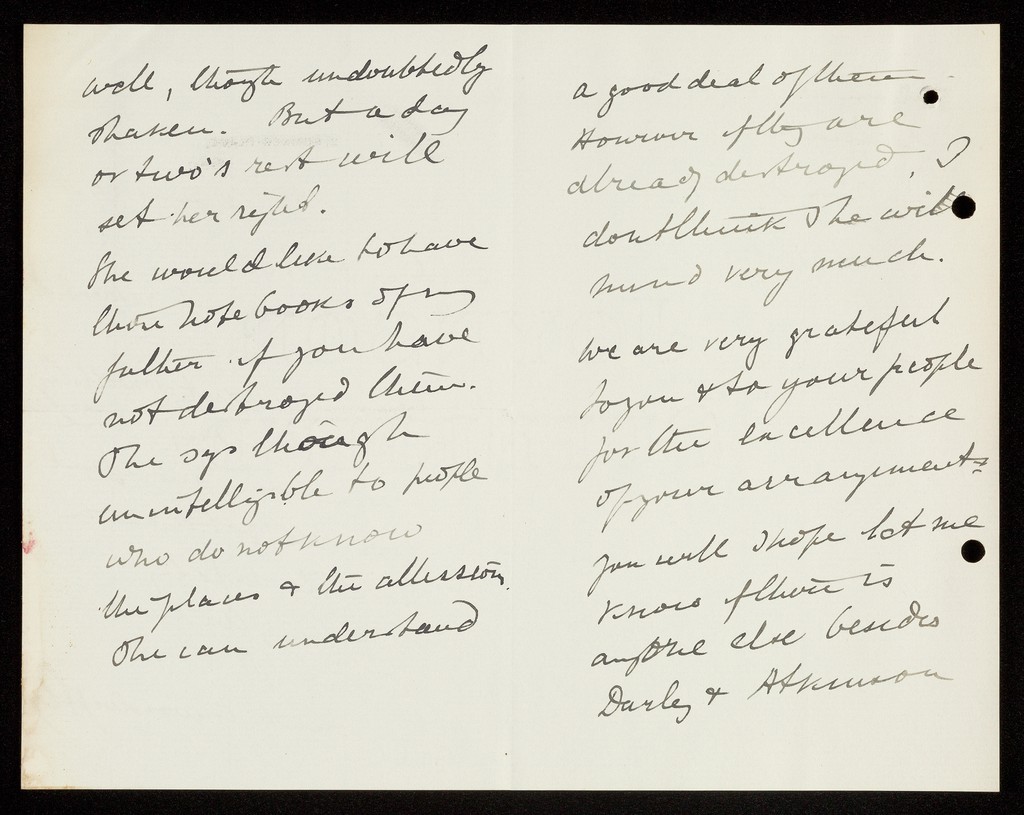 well, though undoubtedly
shaken. But a day
or two's rest will
set her right.
She would like to have
those note books of my
father if you have
not destroyed them.
She says though
unintelligible to people
who do not know
the places & the allusions.
She can understand
a good deal of them.
However if they are
already destroyed, I
dont think she will
mind very much.
We are very grateful
to you & to your people
for the excellence
of your arrangements
You will I hope let me
know if there is
anyone else besides
Darley & Atkinson